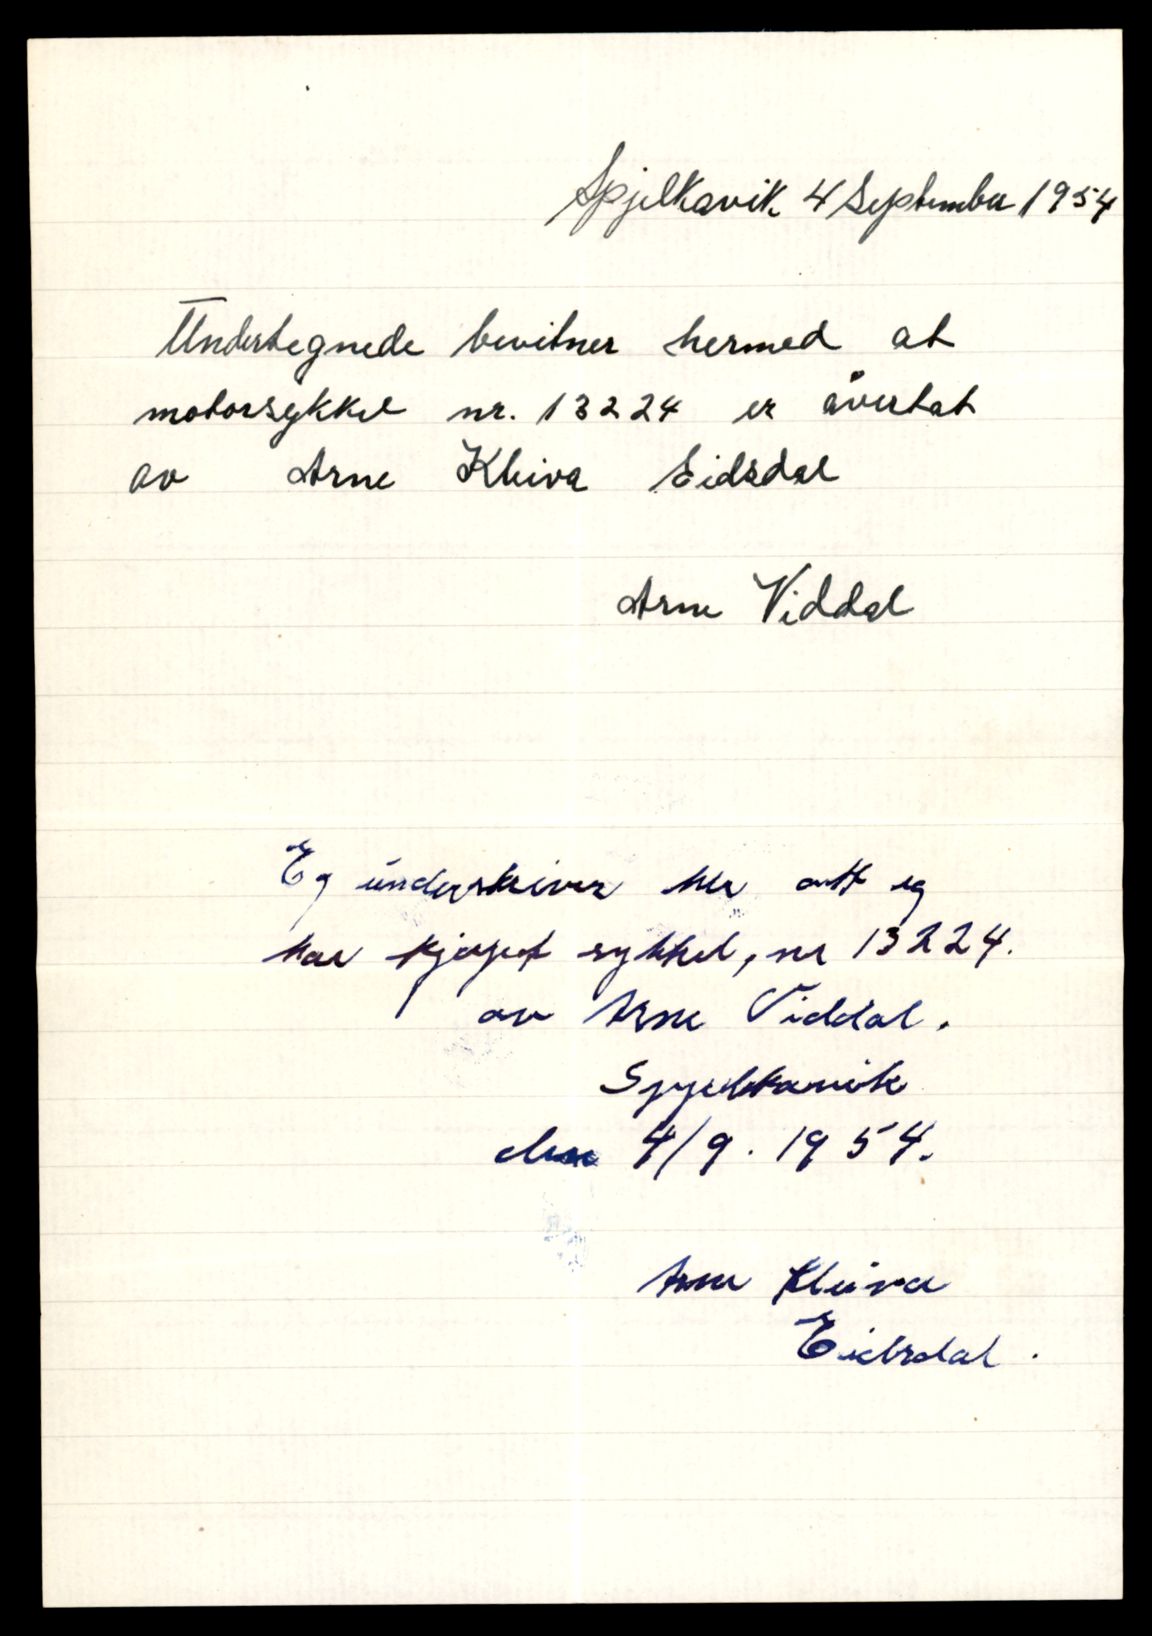 Spjelkavik 4 September 1954
Undertegnede bevitner hermed at
motorsykkel nr. 13224 er åvertat
av Arne Kleiva Eidsdal
Arne Viddal
Eg underskriver her att eg
har kjøpet sykkel, nr 13224.
av Arne Viddal.
Spjelkavik
den 4/9. 1954.
Arne Kleiva
Eidsdal.